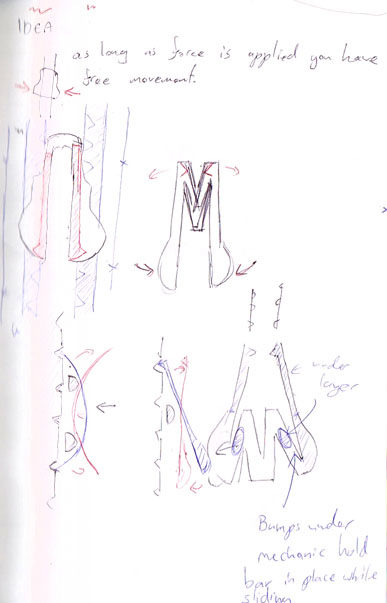 IDEA
as long as force is applied you have
free movement.
under
layer
Bumps under
mechanic hold
bar in place while
sliding